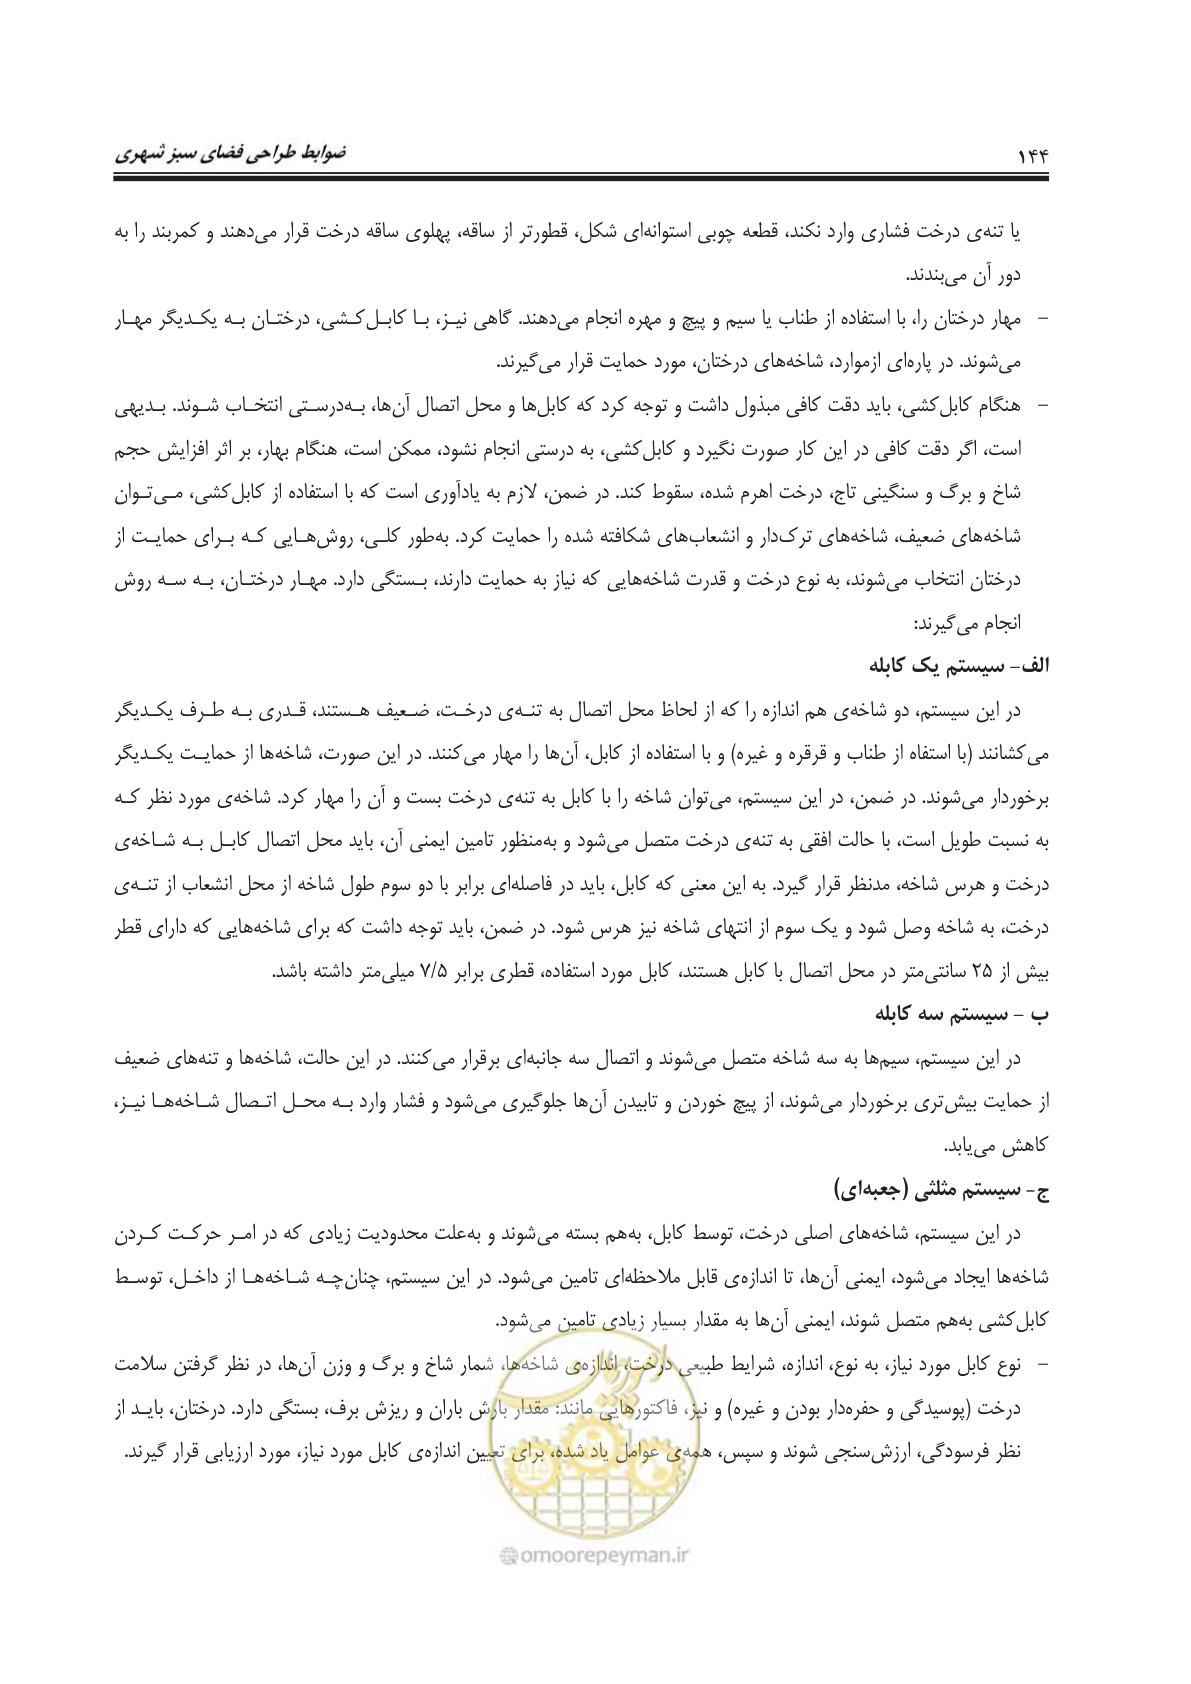 ۱۴۴
ضوابط طراحی فضای سبز شهری
یا تنه‌ی درخت فشاری وارد نکند، قطعه چوبی استوانه‌ای شکل، قطورتر از ساقه، پهلوی ساقه درخت قرار می‌دهند و کمربند را به
دور آن می‌بندند.
– مهار درختان را، با استفاده از طناب یا سیم و پیچ و مهره انجام می‌دهند. گاهی نیز، با کابل‌کشی، درختان به یکدیگر مهار
می‌شوند. در پاره‌ای ازموارد، شاخه‌های درختان، مورد حمایت قرار می‌گیرند.
– هنگام کابل‌کشی، باید دقت کافی مبذول داشت و توجه کرد که کابل‌ها و محل اتصال آن‌ها، به‌درستی انتخاب شوند. بدیهی
است، اگر دقت کافی در این کار صورت نگیرد و کابل‌کشی، به درستی انجام نشود، ممکن است، هنگام بهار، بر اثر افزایش حجم
شاخ و برگ و سنگینی تاج، درخت اهرم شده، سقوط کند. در ضمن، لازم به یادآوری است که با استفاده از کابل‌کشی، می‌توان
شاخه‌های ضعیف، شاخه‌های ترک‌دار و انشعاب‌های شکافته شده را حمایت کرد. به‌طور کلی، روش‌هایی که برای حمایت از
درختان انتخاب می‌شوند، به نوع درخت و قدرت شاخه‌هایی که نیاز به حمایت دارند، بستگی دارد. مهار درختان، به سه روش
انجام می‌گیرند:
الف- سیستم یک کابله
در این سیستم، دو شاخه‌ی هم اندازه را که از لحاظ محل اتصال به تنه‌ی درخت، ضعیف هستند، قدری به طرف یکدیگر
می‌کشانند (با استفاه از طناب و قرقره و غیره) و با استفاده از کابل، آن‌ها را مهار می‌کنند. در این صورت، شاخه‌ها از حمایت یکدیگر
برخوردار می‌شوند. در ضمن، در این سیستم، می‌توان شاخه را با کابل به تنه‌ی درخت بست و آن را مهار کرد. شاخه‌ی مورد نظر که
به نسبت طویل است، با حالت افقی به تنه‌ی درخت متصل می‌شود و به‌منظور تامین ایمنی آن، باید محل اتصال کابل به شاخه‌ی
درخت و هرس شاخه، مدنظر قرار گیرد. به این معنی که کابل، باید در فاصله‌ای برابر با دو سوم طول شاخه از محل انشعاب از تنه‌ی
درخت، به شاخه وصل شود و یک سوم از انتهای شاخه نیز هرس شود. در ضمن، باید توجه داشت که برای شاخه‌هایی که دارای قطر
بیش از ۲۵ سانتی‌متر در محل اتصال با کابل هستند، کابل مورد استفاده، قطری برابر ۷/۵ میلی‌متر داشته باشد.
ب – سیستم سه کابله
در این سیستم، سیم‌ها به سه شاخه متصل می‌شوند و اتصال سه جانبه‌ای برقرار می‌کنند. در این حالت، شاخه‌ها و تنه‌های ضعیف
از حمایت بیش‌تری برخوردار می‌شوند، از پیچ خوردن و تابیدن آن‌ها جلوگیری می‌شود و فشار وارد به محل اتصال شاخه‌ها نیز،
کاهش می‌یابد.
ج- سیستم مثلثی (جعبه‌ای)
در این سیستم، شاخه‌های اصلی درخت، توسط کابل، به‌هم بسته می‌شوند و به‌علت محدودیت زیادی که در امر حرکت کردن
شاخه‌ها ایجاد می‌شود، ایمنی آن‌ها، تا اندازه‌ی قابل ملاحظه‌ای تامین می‌شود. در این سیستم، چنان‌چه شاخه‌ها از داخل، توسط
کابل‌کشی به‌هم متصل شوند، ایمنی آن‌ها به مقدار بسیار زیادی تامین می‌شود.
– نوع کابل مورد نیاز، به نوع، اندازه، شرایط طبیعی درخت، اندازه‌ی شاخه‌ها، شمار شاخ و برگ و وزن آن‌ها، در نظر گرفتن سلامت
درخت (پوسیدگی و حفره‌دار بودن و غیره) و نیز، فاکتورهایی مانند: مقدار بارش باران و ریزش برف، بستگی دارد. درختان، باید از
نظر فرسودگی، ارزش‌سنجی شوند و سپس، همه‌ی عوامل یاد شده، برای تعیین اندازه‌ی کابل مورد نیاز، مورد ارزیابی قرار گیرند.
امور پیمان
@omoorepeyman.ir